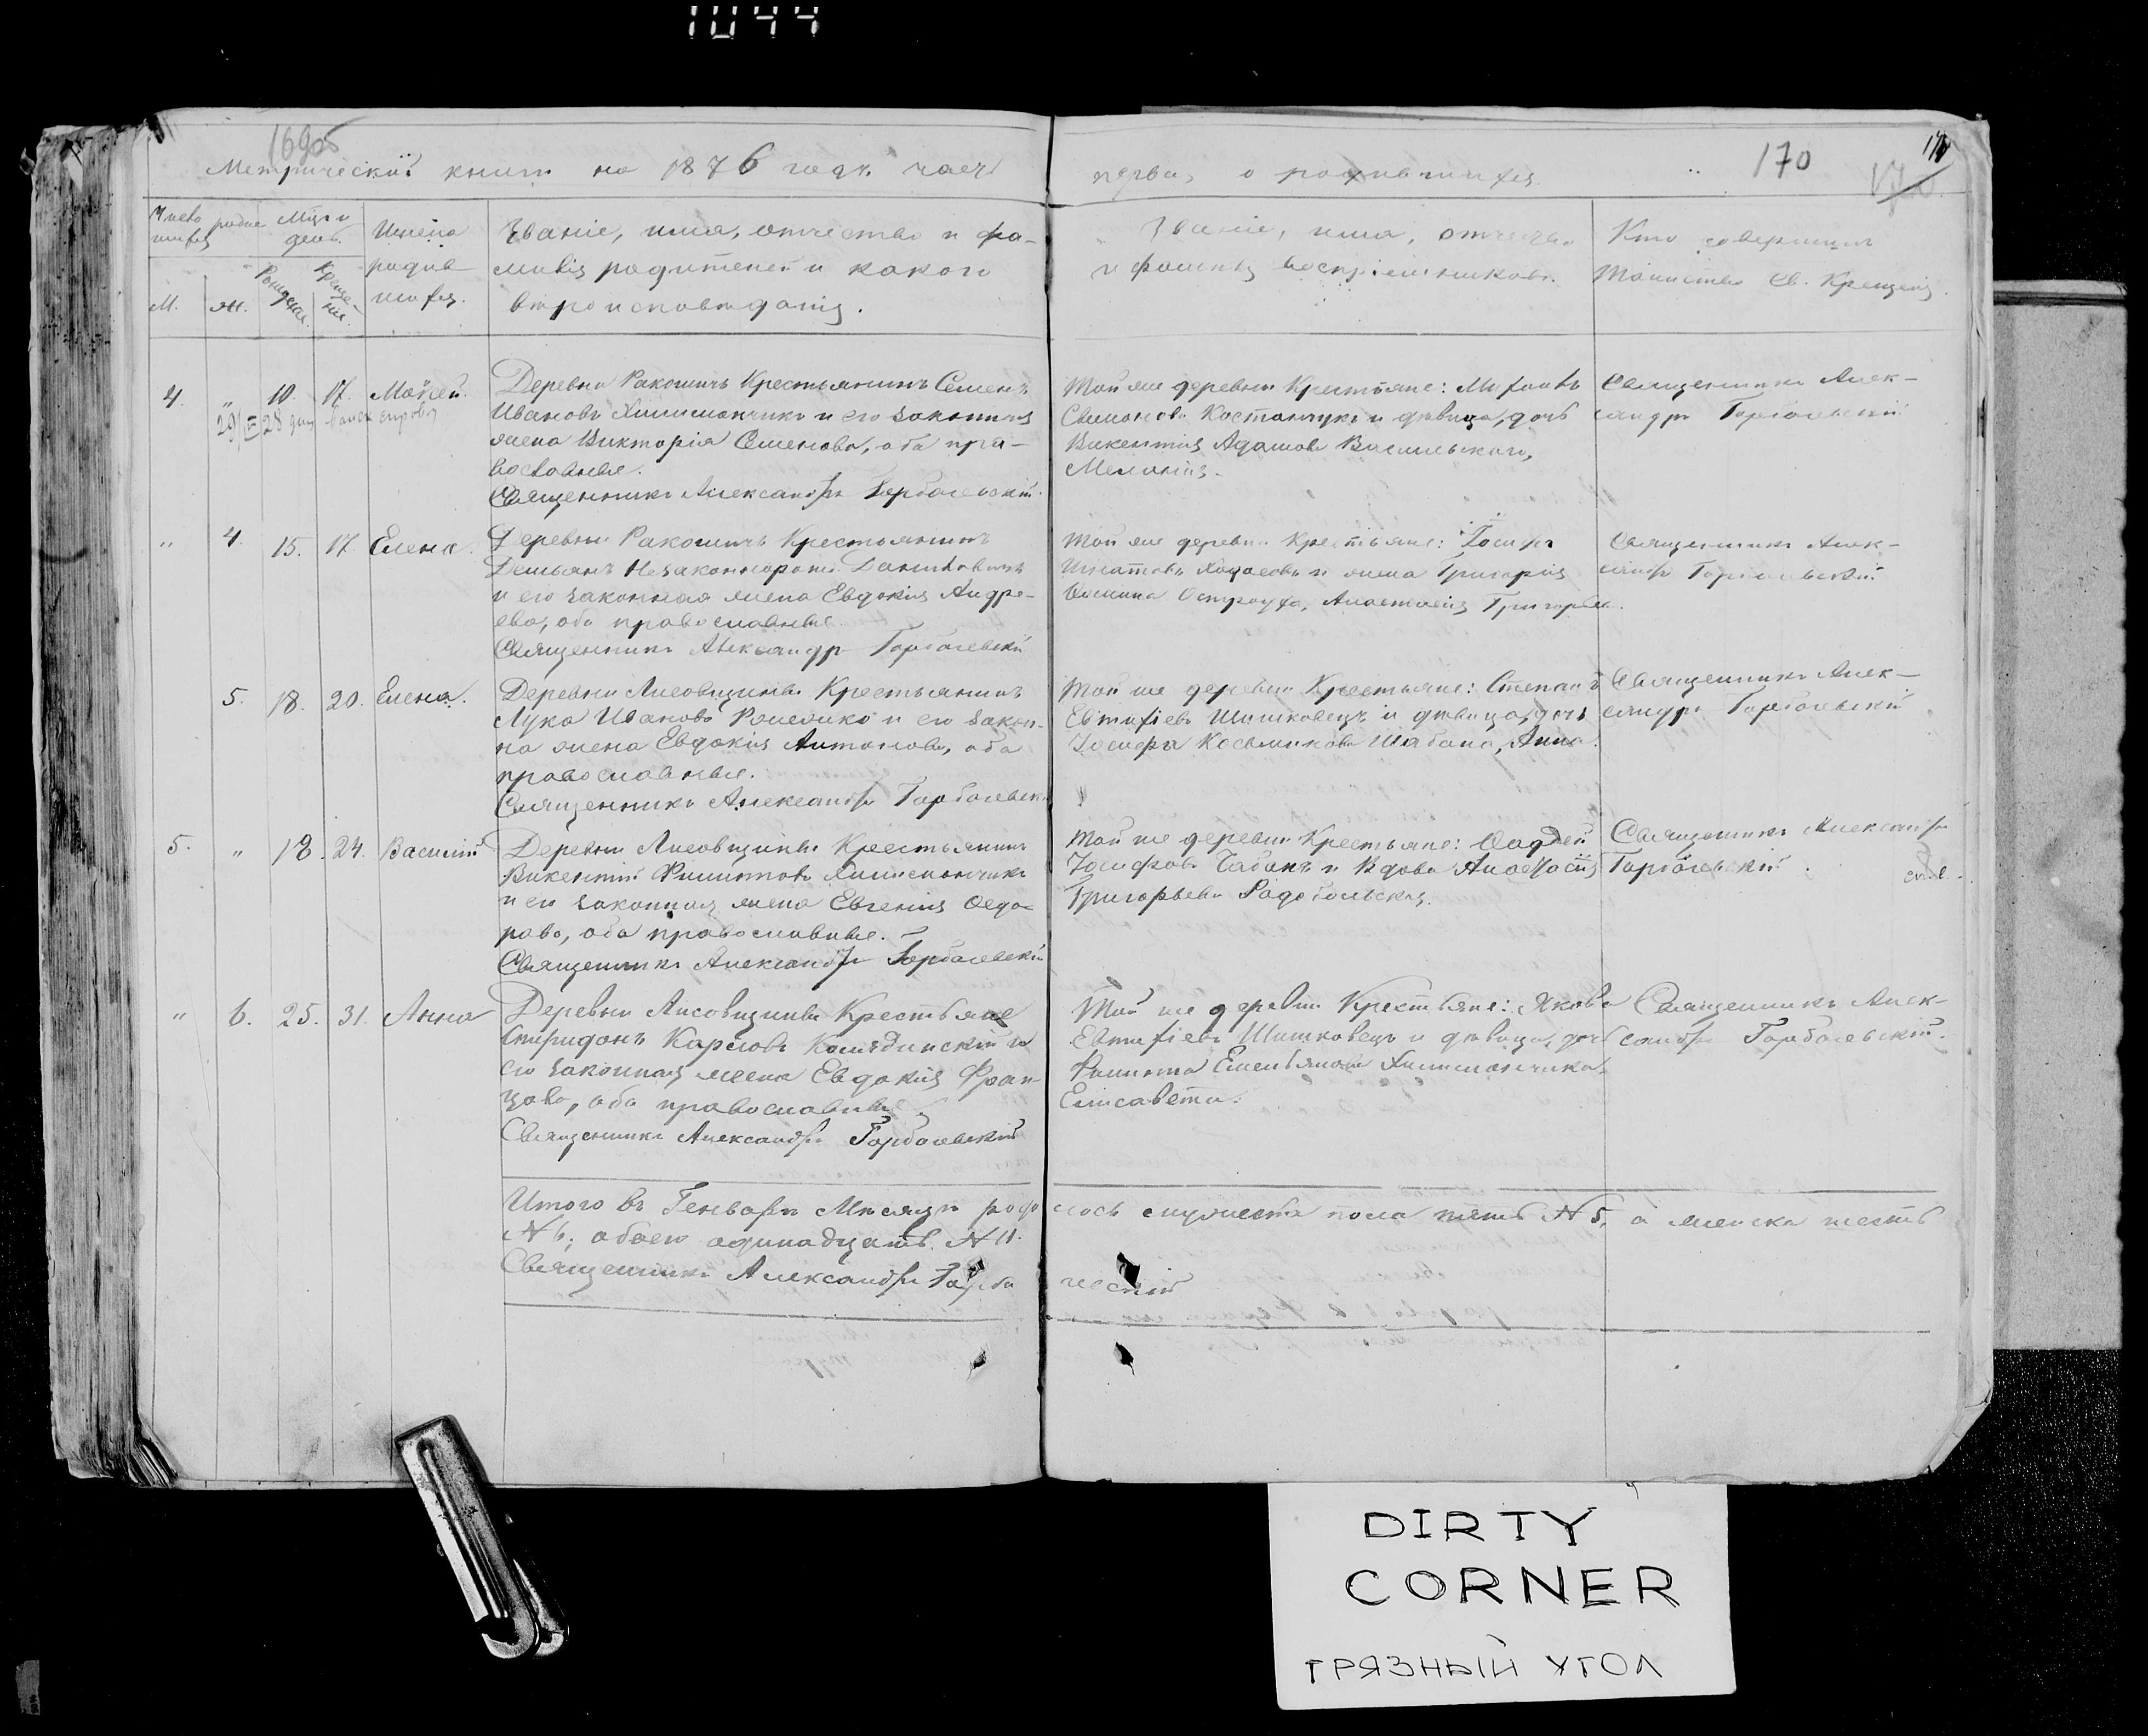 1044
169об
Метрической книги на 1876 годъ часть
первая о родившихся
170
Число родив
шихся
Мцъ и
день
Рожденія
Креще-
нія.
М.
Ж.
Имена
родив
шихся.
Званіе, имя, отчество и фа-
милія родителей и какого
вѣроисповѣданія.
Званіе, имя, отчество
и фамилія воспріемниковъ.
Кто совершилъ
таинство Св. Крещенія.
4. „ 10. 17. Моисей.
Деревни Ракошичъ Крестьянинъ Семенъ
Ивановъ Климанчикъ и его законная
жена Викторія Семенова, оба пра-
вославные.
Священникъ Александръ Горбачевскій.
Той же деревни Крестьяне:
Симоновъ Костанчукъ и дѣвица, дочь
Викентія Адамова Васильского,
Меланія.
Священникъ Алек-
сандръ Горбачевскій
„ 4. 15. 17. Елена.
Деревни Ракошичъ Крестьянинъ
Демьянъ Незаконнорож.
и его законная жена Евдокія Андре-
ева, оба православные.
Священникъ Александръ Горбачевскій
Той же деревни Крестьяне: Іосифъ
Игнатовъ и жена Григорія
Анастасія Григорьева.
Священникъ Алек-
сандръ Горбачевскій
5. 18. 20. Елена.
Деревни Лисовщины Крестьянинъ
Лука Ивановъ и его закон-
ная жена Евдокія Антонова, оба
православные.
Священникъ Александръ Горбачевскій
Той же деревни Крестьяне: Степанъ
Евтихіевъ Шишковецъ и дѣвица, дочь
Іосифа Шабана, Анна.
Священникъ Алек-
сандръ Горбачевскій
5. „ 18. 24. Василій
Деревни Лисовщины Крестьянинъ
Викентій Филиповъ Климанчикъ
и его законная жена Евгенія Ѳедо-
рова, оба православные.
Священникъ Александръ Горбачевскій
Той же деревни Крестьяне: Ѳаддей
Іосифовъ и Вдова Анастасія
Григорьева
Священникъ Александръ
Горбачевскій.
„ 6. 25. 31. Анна
Деревни Лисовщины Крестьяне
Спиридонъ Карповъ и
его законная жена Евдокія Фран-
цова, оба православные.
Священникъ Александръ Горбачевскій
Той же деревни Крестьяне: Яковъ
Евтихіевъ Шишковецъ и дѣвица, дочь
Филипа Емельянова Климанчика,
Елисавета.
Священникъ Алек-
сандръ Горбачевскій.
Итого въ Генварѣ Мѣсяцѣ роди лось мужеска пола пять N 5, а женска шесть
N 6; обоего одинадцать. N 11.
Священникъ Александръ Горба чевскій
DIRTY
CORNER
ГРЯЗНЫЙ УГОЛ